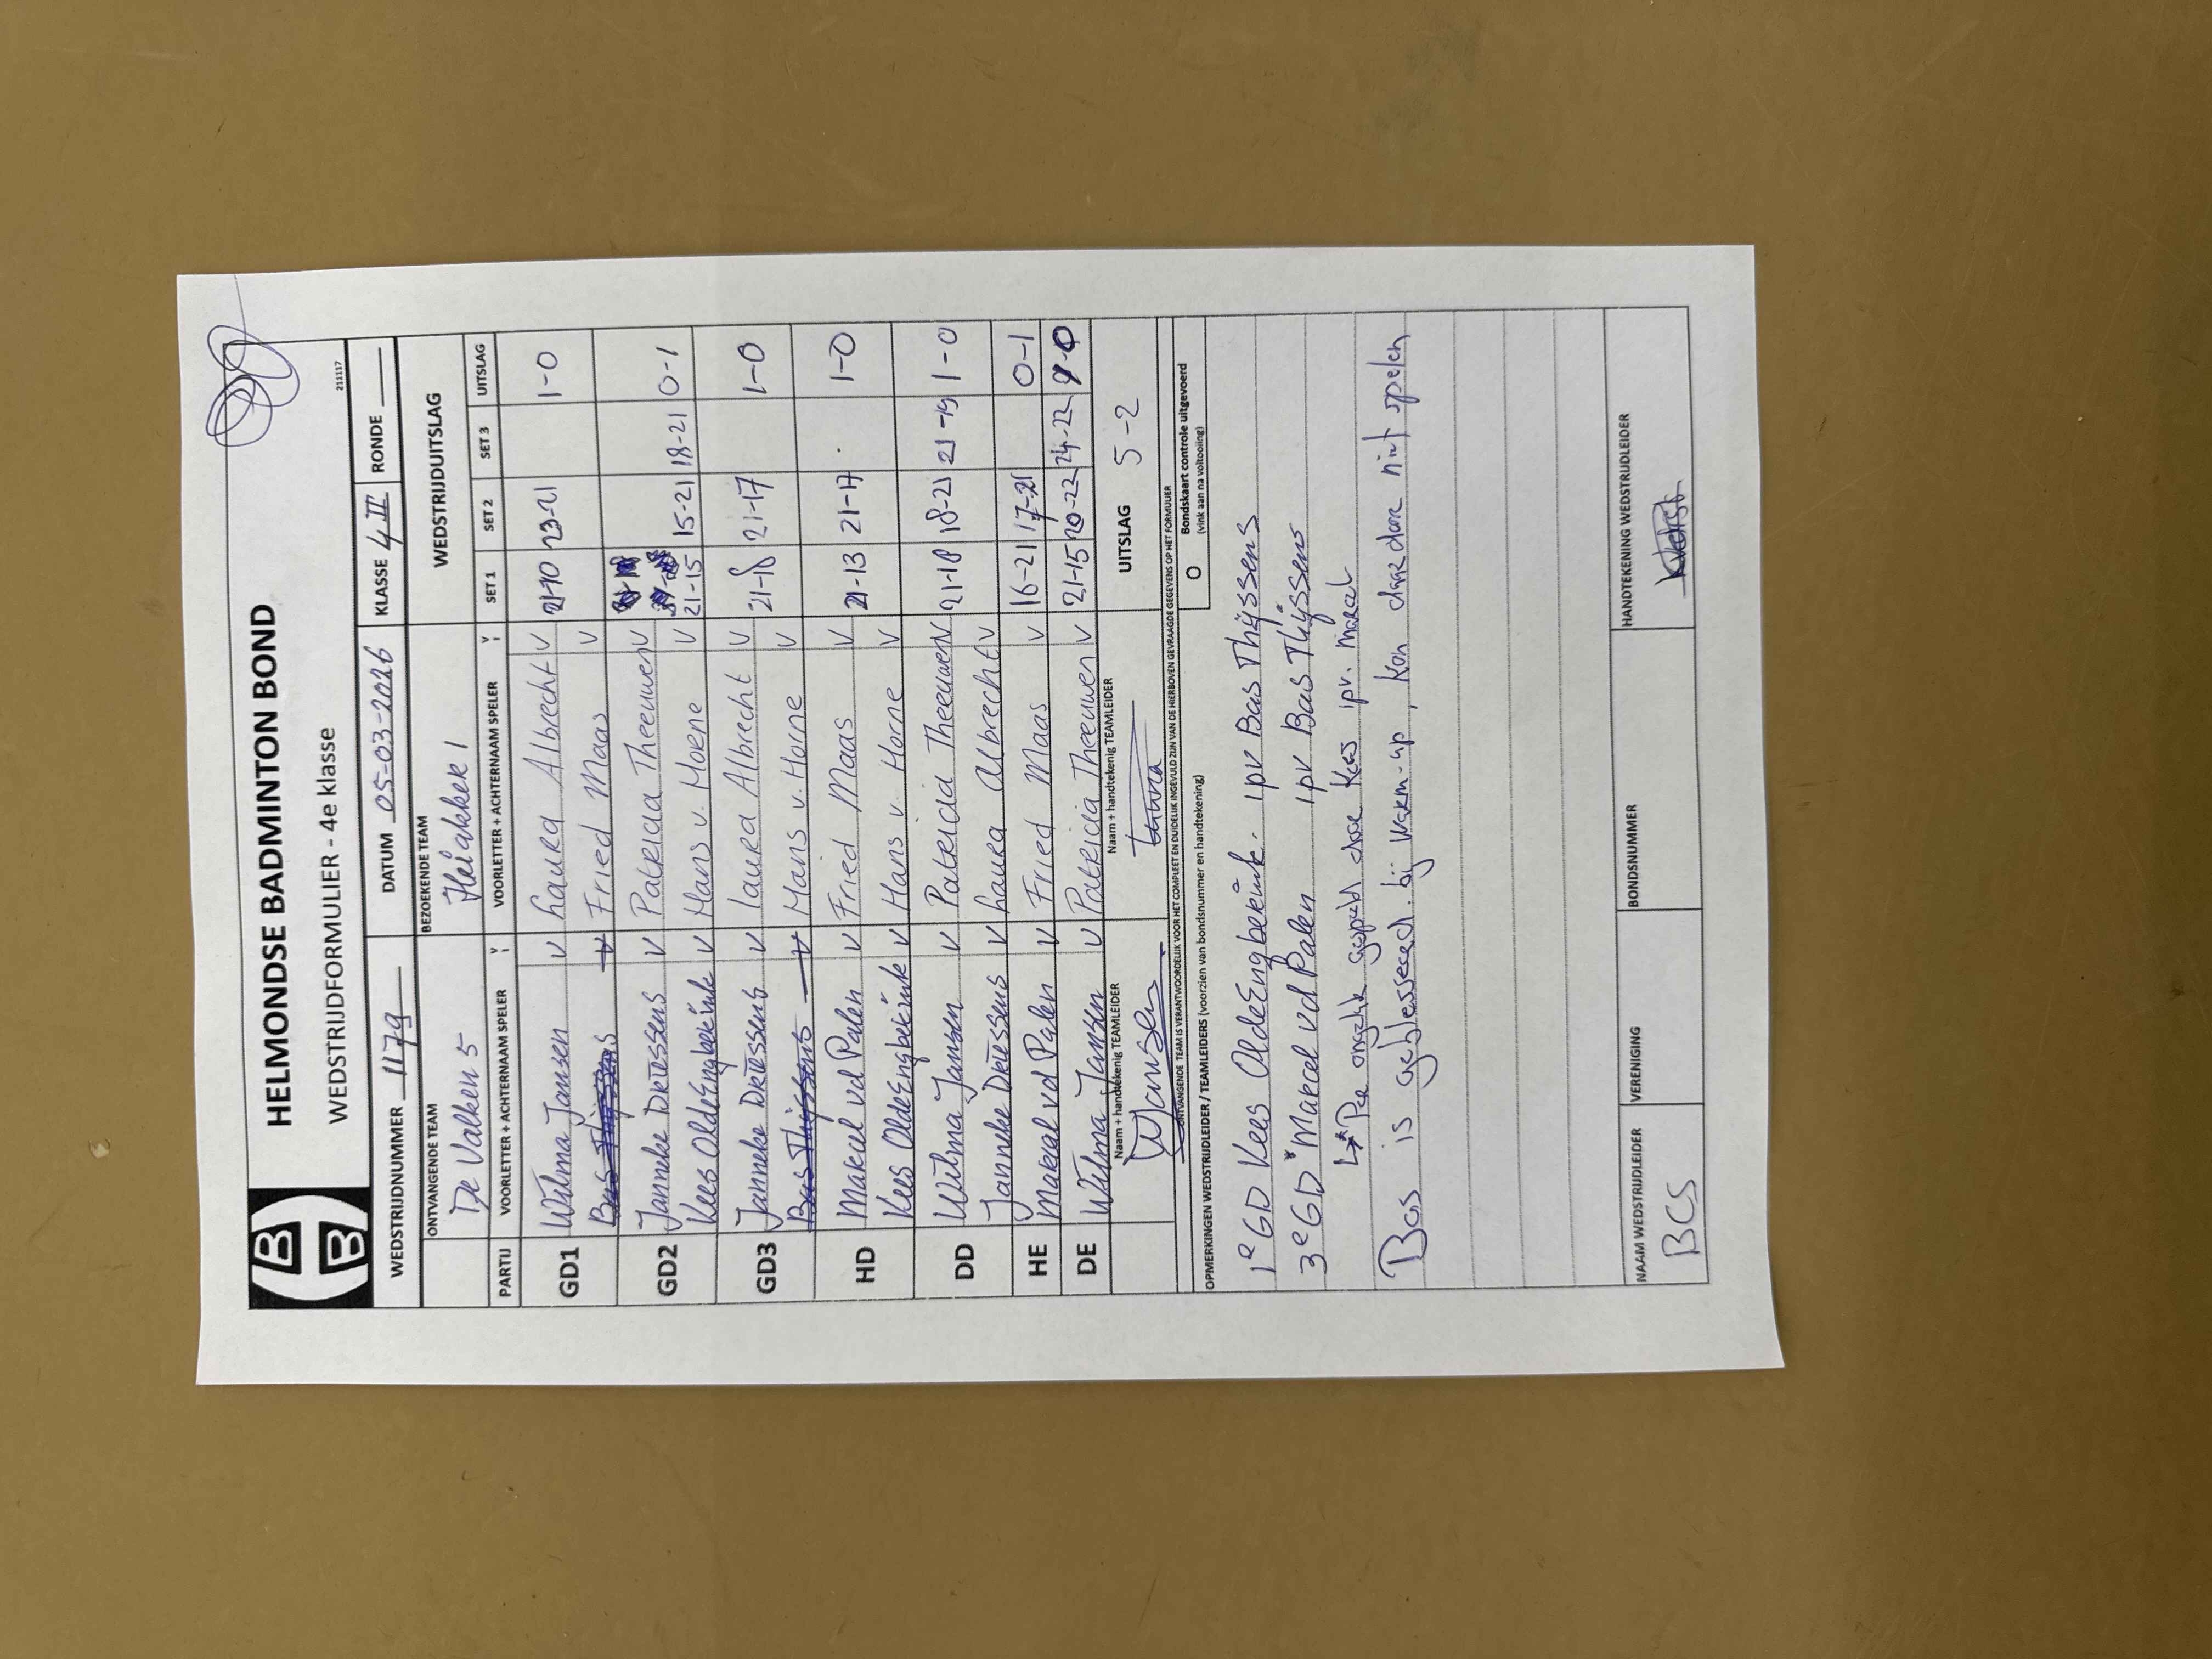 HELMONDSE BADMINTON BOND
WEDSTRIJDFORMULIER - 4e klasse
211117
WEDSTRIJDNUMMER 1179 DATUM 05-03-2026 KLASSE 4 IV RONDE
ONTVANGENDE TEAM BEZOEKENDE TEAM WEDSTRIJDUITSLAG
De Valken 5 Heiakker 1
PARTIJ VOORLETTER + ACHTERNAAM SPELER Y VOORLETTER + ACHTERNAAM SPELER Y SET 1 SET 2 SET 3 UITSLAG
GD1 Wilma Jansen V Laura Albrecht V 21-10 23-21 1-0
Bas Thijssens V Fried Maas V
GD2 Janneke Driessens V Patricia Theeuwen V
Kees OldeEngberink V Hans v. Horne V 21-15 15-21 18-21 0-1
GD3 Janneke Driessens V laura Albrecht V 21-18 21-17 1-0
Bas Thijssens V Hans v. Horne V
HD Marcel vd Palen V Fried Maas V 21-13 21-17 1-0
Kees OldeEngberink V Hans v Horne V
DD Wilma Jansen V Patricia Theeuwen V 21-18 18-21 21-19 1-0
Janneke Driessens V Laura Albrecht V
HE Marcel vd Palen V Fried Maas V 16-21 17-21 0-1
DE Wilma Jansen V Patricia Theeuwen V 21-15 20-22 24-22 1-0
Naam + handtekenig TEAMLEIDER Naam + handtekenig TEAMLEIDER UITSLAG 5-2
WJansen Laura
ONTVANGENDE TEAM IS VERANTWOORDELIJK VOOR HET COMPLEET EN DUIDELIJK INGEVULD ZIJN VAN DE HIERBOVEN GEVRAAGDE GEGEVENS OP HET FORMULIER
O Bondskaart controle uitgevoerd
(vink aan na voltooiing)
OPMERKINGEN WEDSTRIJDLEIDER / TEAMLEIDERS (voorzien van bondsnummer en handtekening)
1e GD Kees OldeEngberink. ipv Bas Thijssens
3e GD * Marcel vd Palen ipv Bas Thijssens
↳* Per ongeluk gespeeld door Kees ipv. Marcel
Bas is geblesseerd. bij warm-up, kon daardoor niet spelen
NAAM WEDSTRIJDLEIDER VERENIGING BONDSNUMMER HANDTEKENING WEDSTRIJDLEIDER
BCS